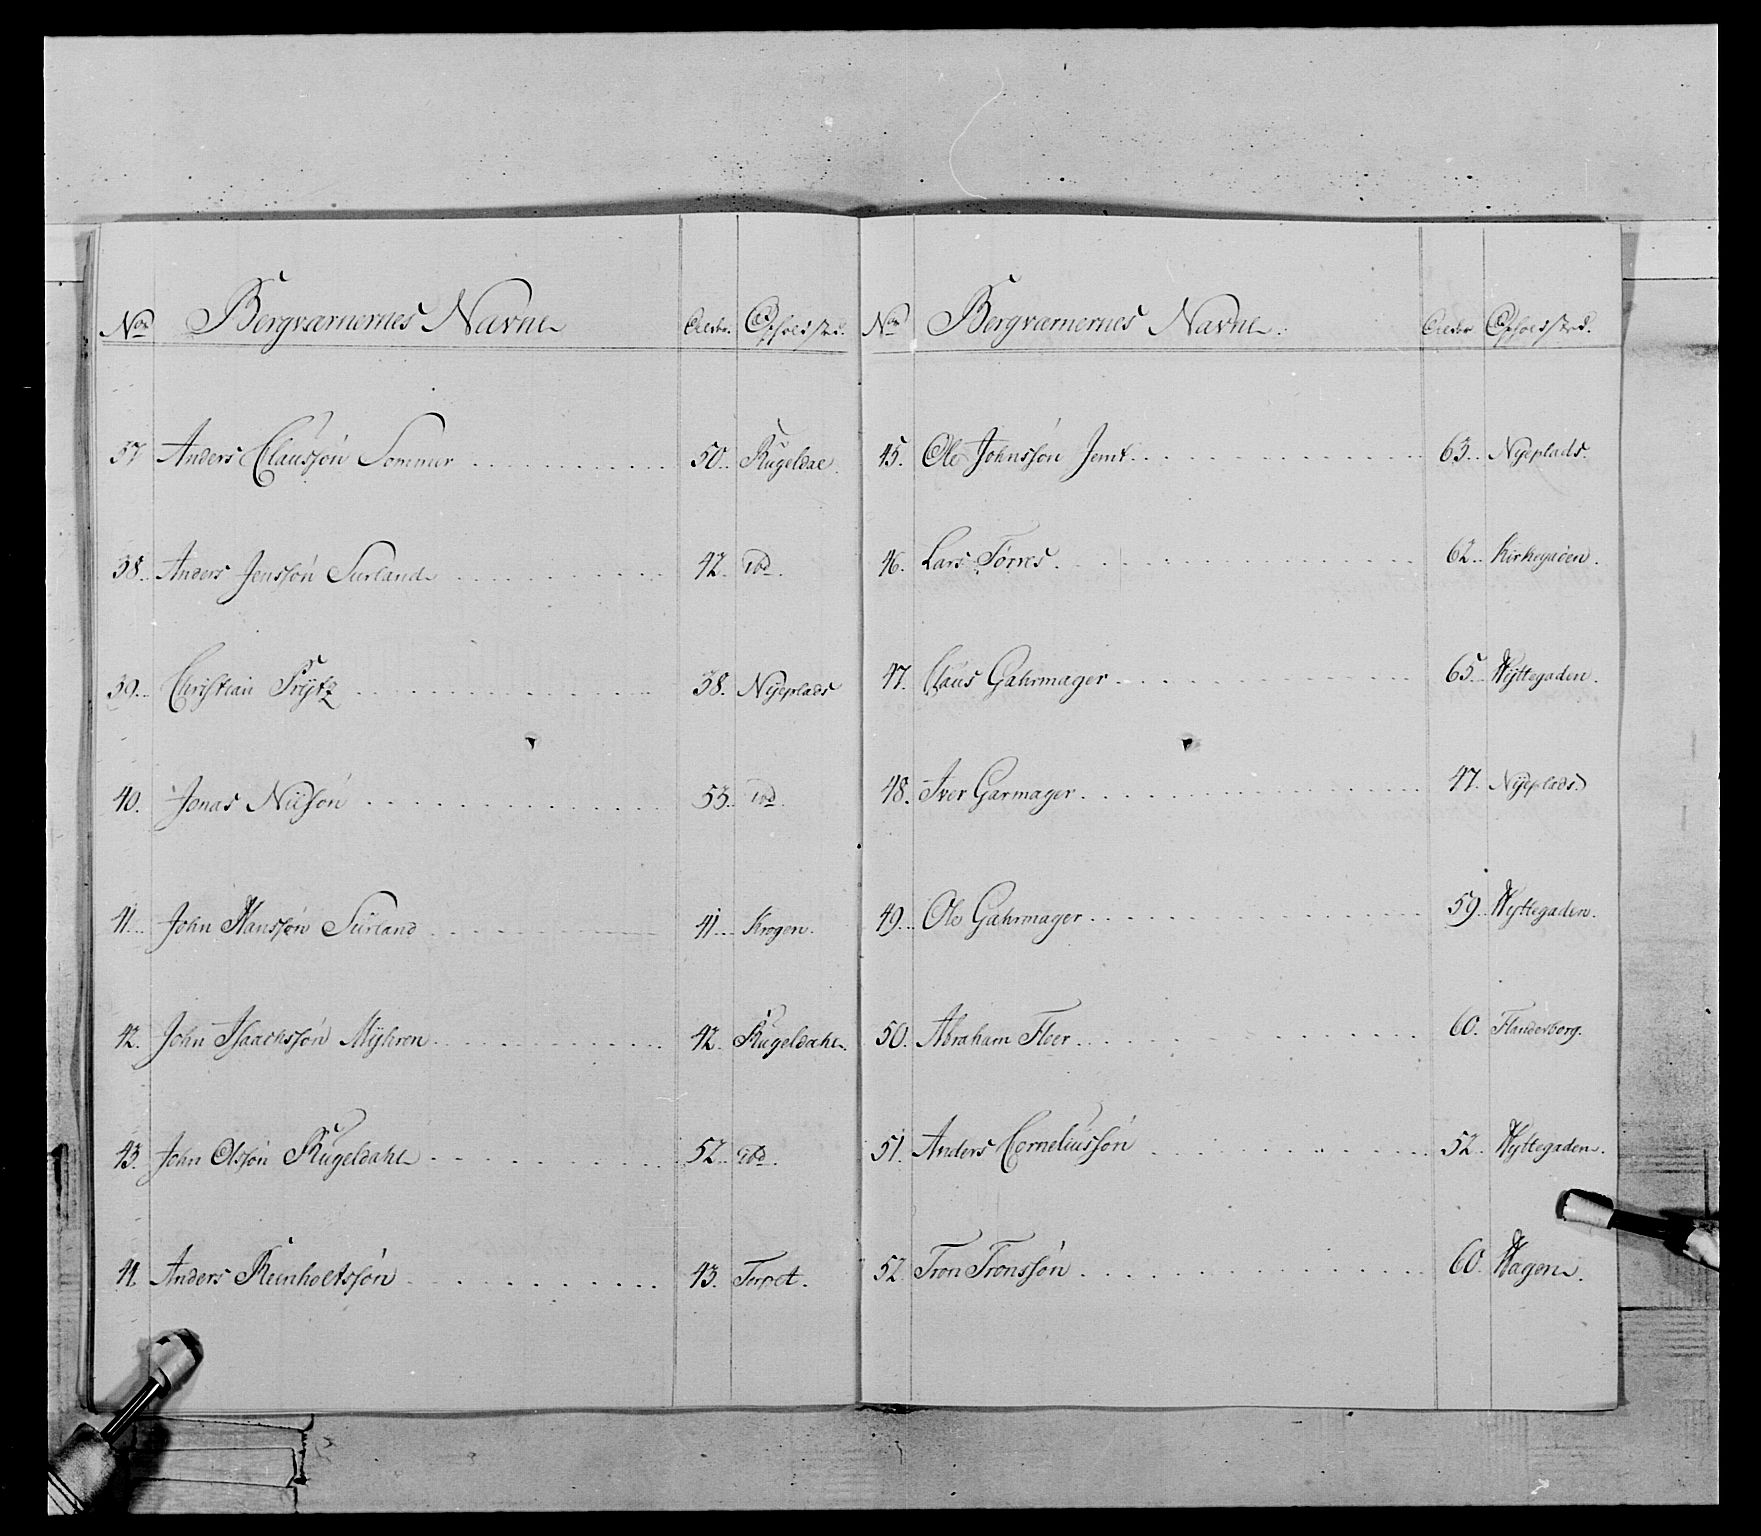 No Bergværnernes Navne Alder. Opholdsted.
37 Anders Claussøn Sommer 50. Kugeldal.
38. Anders Jenssøn Surland 42. Ibd.
39. Christian Frytz 38. Nyeplads
40. Jonas Nilsøn 53. Ibd.
41. John Hanssøn Surland 41. Krogen.
42. John Isaachssøn Myhren 42. Kugeldahl.
43. John Olssøn Kugeldahl 52. Ibd.
44. Anders Reinholtssøn 43. Torvet.
No Bergværnernes Navne. Alder Opholdsted.
45. Ole Johnssøn Jemt 63. Nyeplads.
46. Lars Tørres. 62. Kirkegaden.
47. Claus Gahrmager 65. Hyttegaden.
48. Iver Garmager 47. Nyeplads.
49. Ole Gahrmager 59. Hyttegaden.
50. Abraham Floer 60. Flanderborg.
51. Anders Corneliussøn 52. Hyttegaden.
52. Tron Tronssøn 60. Hagen.